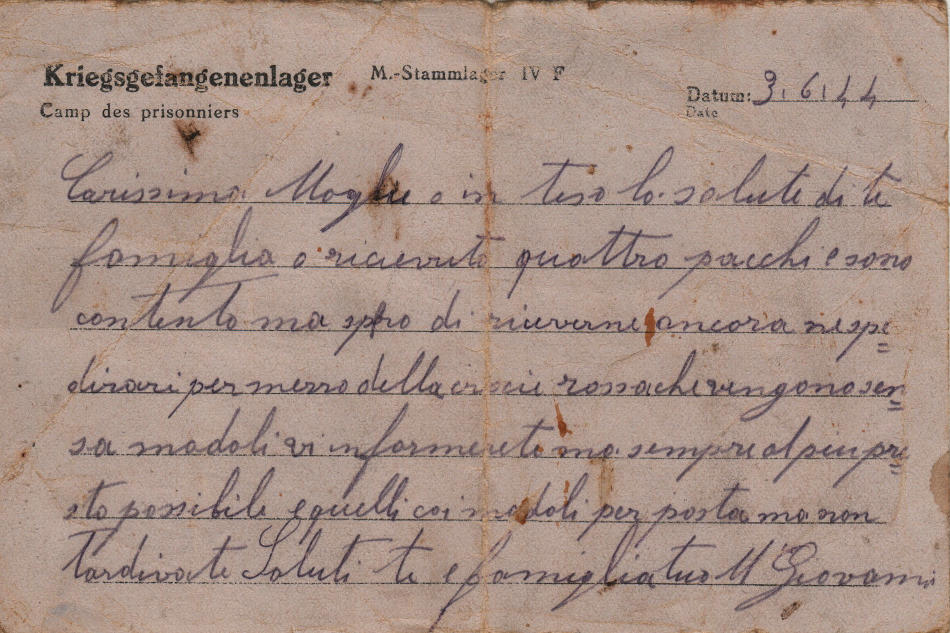 Kriegsgefangenenlager M.-Stammlager IV F
Camp des prisonniers
Datum: 3.6.44
Date
Carissima Moglie o in teso la salute di te
famiglia o ricievuto quattro pacchi e sono
contento ma spero di riceverne ancora ne spe=
dirari per mezzo della crocie rossa che vengono sen=
sa modoli vi informerete ma sempre al piu pre=
sto possibili e quelli coi modoli per posta ma non
tardivate Saluti te e famiglia tuo M Giovanni